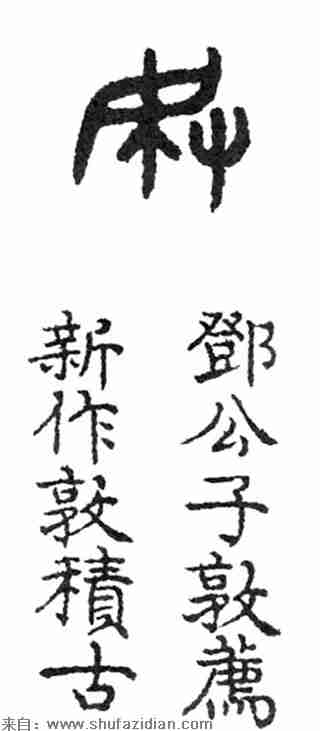 鄧公子敦薦
新作敦積古
来自：www.shufazidian.com